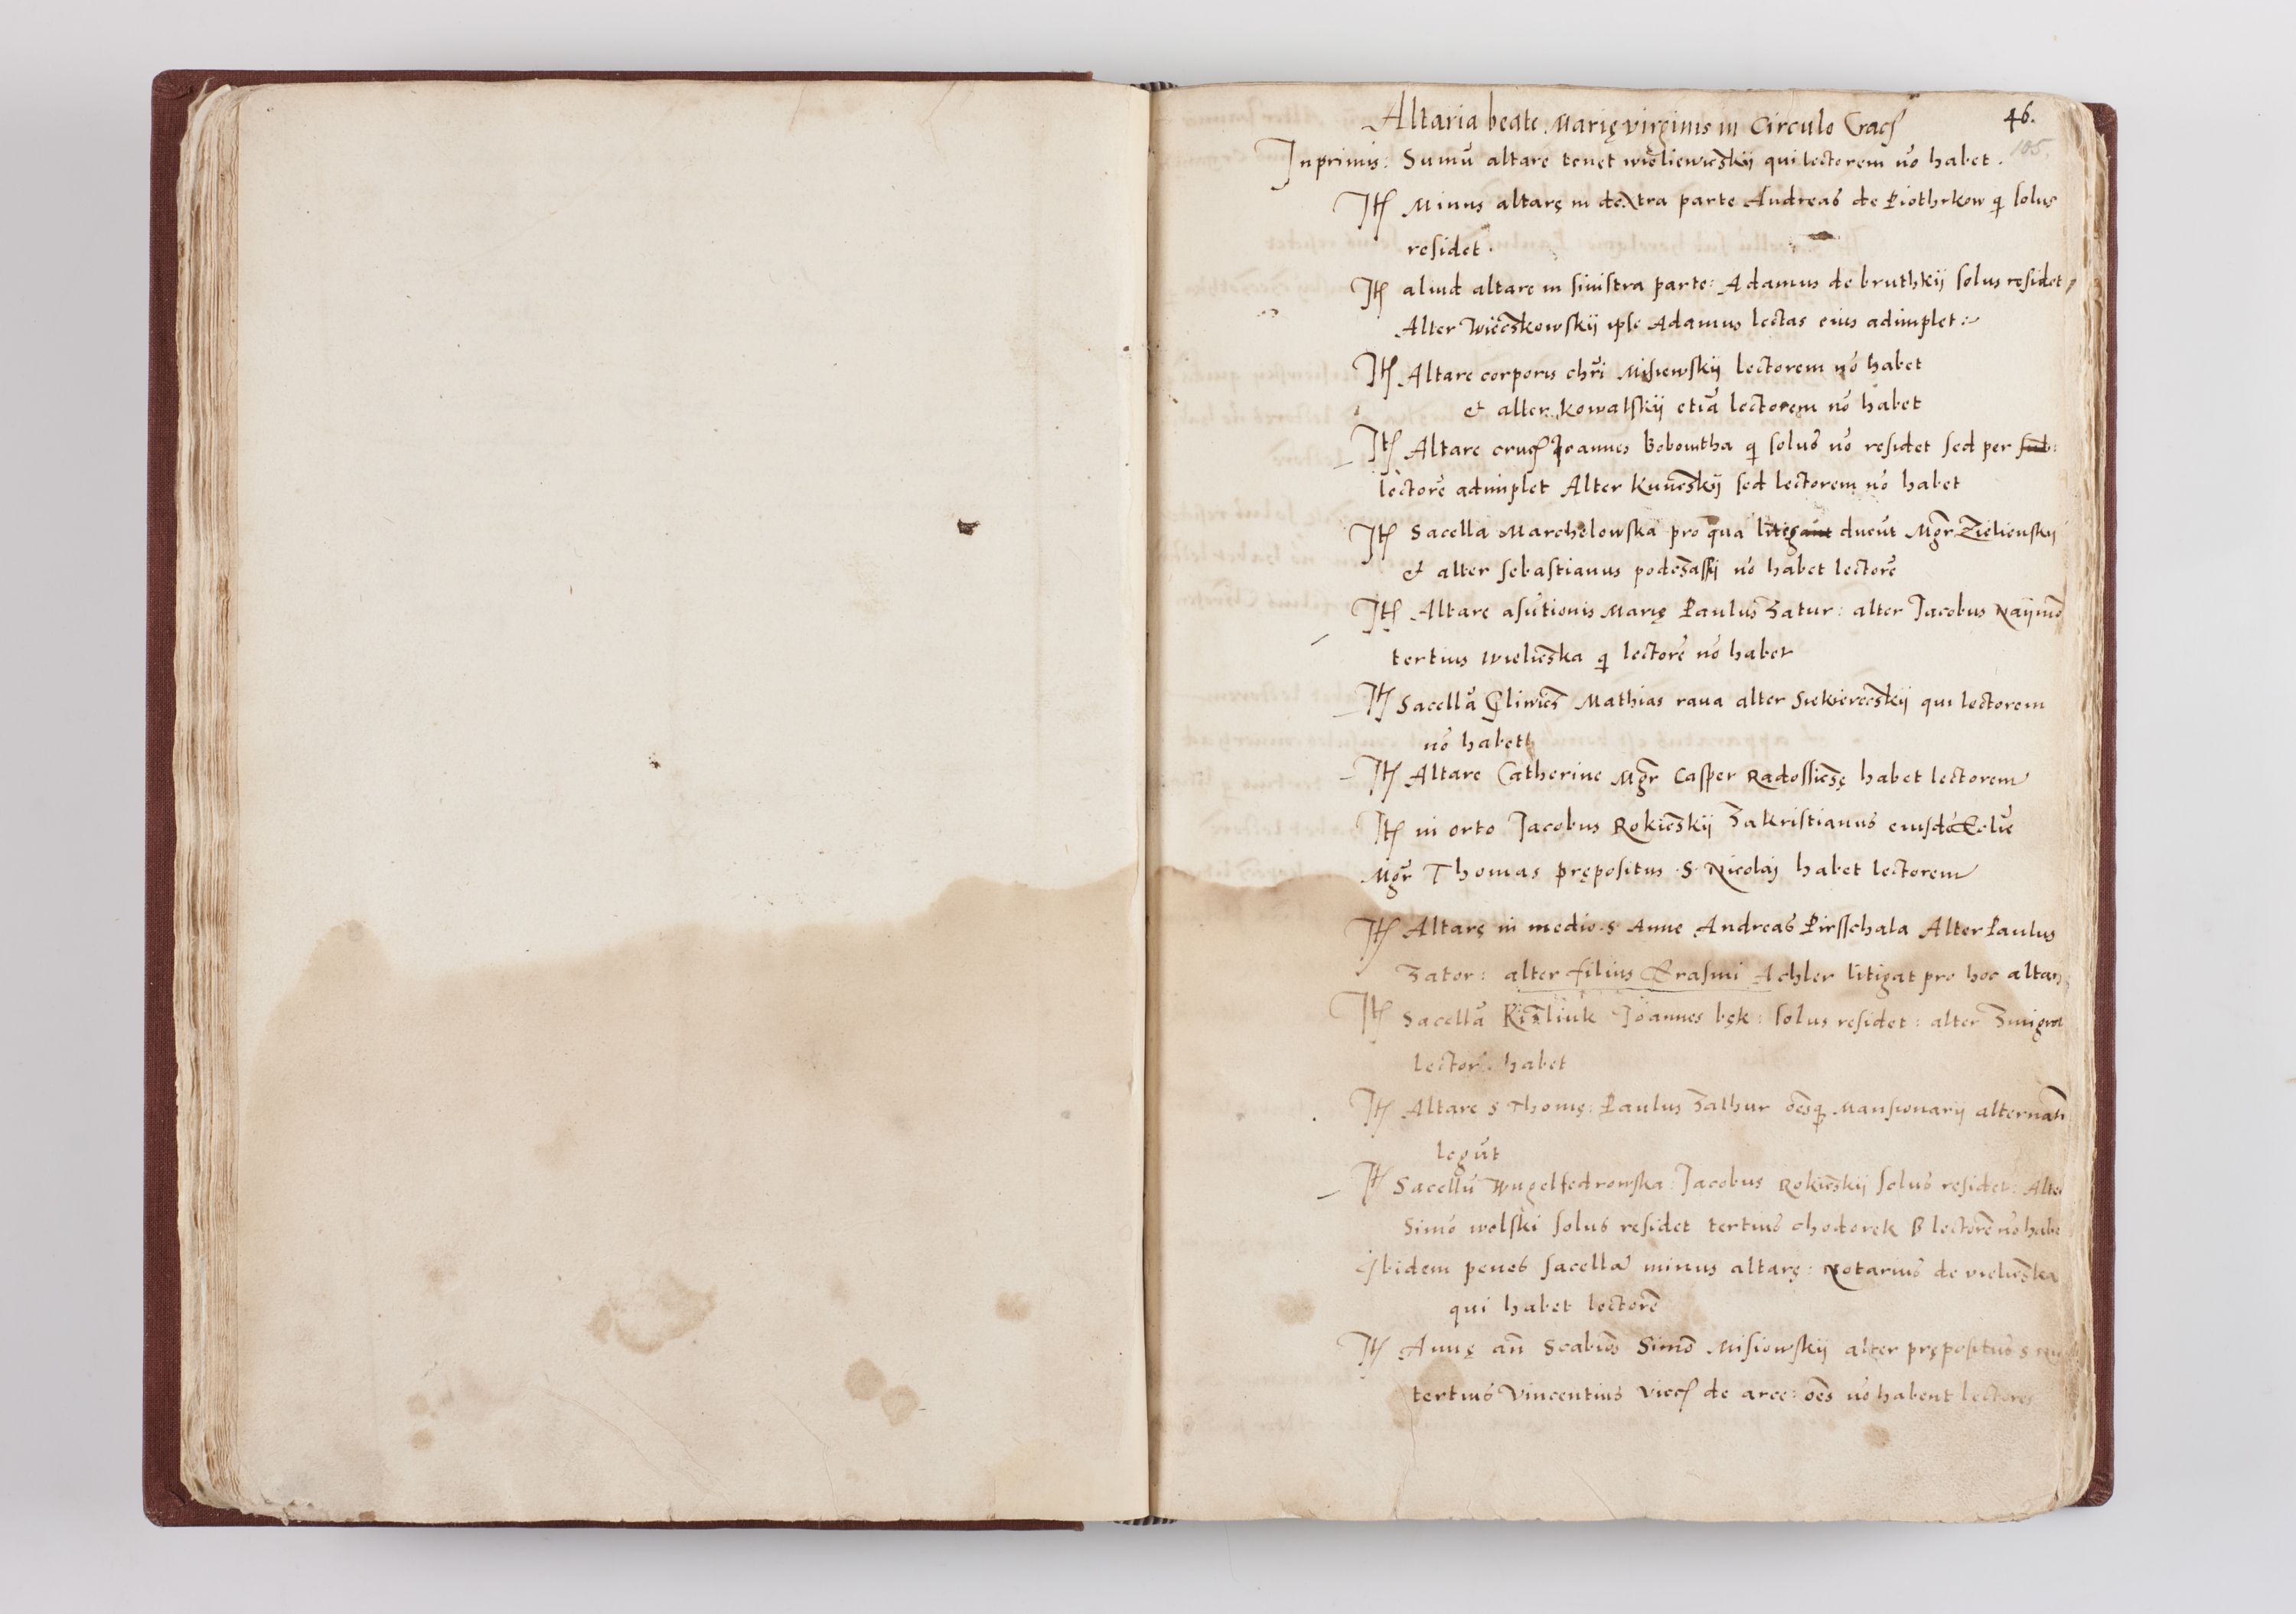 46.
105.
Altaria beate Marię virginis in Circulo Crac
Inprimis: Sumū altare tenet wieliewieskij qui lectorem nō habet.
Itē Minus altarę in dextra parte Andreas de Piothrkow q solus
residet.
Itē aliud altare in sinistra parte: Adamus de bruthkij solus residet
Alter Wieczkowskij ipse Adamus lectas eius adimplet:
Itē Altare corporis chri Misiewskij lectorem nō habet
et alter Kowalskij etiā lectorem nō habet
Itē Altare cruc Joannes Bobowtha q solus nō residet sed per sub:
lectorē adimplet Alter Kunieskij sed lectorem nō habet
Itē Sacella Marchelowska pro qua litigant ducūt Mgr Zielienskij
et alter sebastianus podesaskij nō habet lectorē
Itē Altare asūtionis Marię Paulus Zatur: alter Jacobus Naymā
tertius Wieliczka q lectorē nō habet
Itē Sacellū Gliwies Mathias raua alter Siekierzeczkij qui lectorem
nō habett
Itē Altare Catherine Mgr Casper Radossicze habet lectorem
Itē in orto Jacobus Rokiczkij Zakristianus eiusdē Eclīe
Mgr Thomas prępositus S Nicolaj habet lectorem
Itē Altarę in medio S Anne Andreas Pirsschala Alter Paulus
Zator: alter filius Erasmi Achler litigat pro hoc altari
Itē Sacellū Kisliuk Joannes bęk: solus residet: alter Zmigrot
lector habet
Itē Altare S Thomę: Paulus Zathur oēsq Mansionarij alternatī
legūt
Itē Sacellū Wugelfedrowska: Jacobus Rokiczkij solus residet: Alter
Simō wolski solus residet tertius chodorek lectorē nō habe
Ibidem penes sacellū minus altarę: Notarius de vieliczka
qui habet lectorē
Itē Annę an Scabios Simō Misiowskij alter prępositus S
tertius Vincentius vicec de arce: oēs nō habent lectores